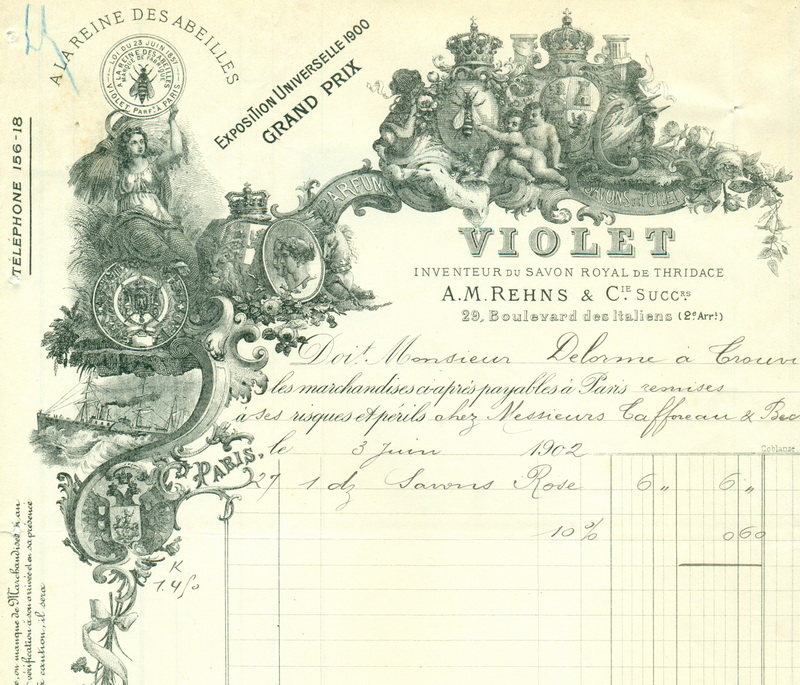 A LA REINE DES ABEILLES
LOI DU 23 JUIN 1857
A LA REINE DES ABEILLES
MARQUE DE FABRIQUE
VIOLET, PARF. A PARIS
EXPOSITION UNIVERSELLE 1900
GRAND PRIX
TÉLÉPHONE 156-18
PARFUMS
SAVONS DE TOILETTE
VIOLET
INVENTEUR DU SAVON ROYAL DE THRIDACE
A.M. REHNS & CIE SUCCRS
29, Boulevard des Italiens (2e Arrt)
Doit Monsieur Delorme à Trouvi
les marchandises ci-après payables à Paris remises
à ses risques et périls chez Messieurs Tafforeau & Bec
PARIS, le 3 Juin 1902
27 1 dz Savons Rose 6 " 6 "
10% 0 60
K
1.450
ou manque de Marchandises, à un
vérification à son arrivée et en sa présence
caution, il sera